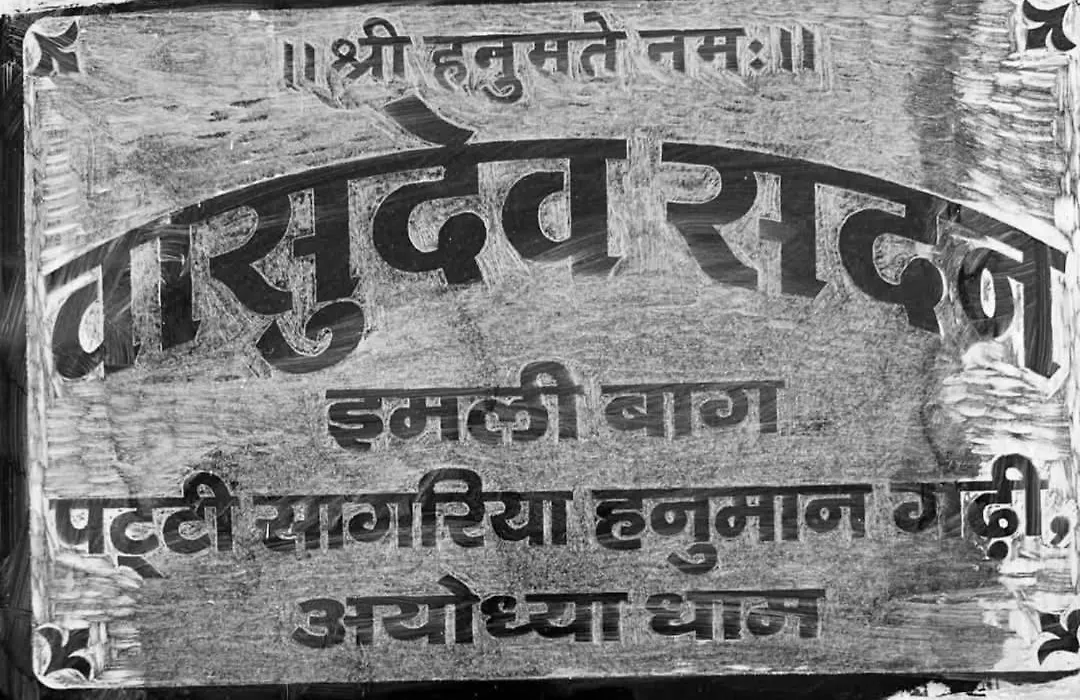 ।। श्री हनुमते नमः ।।
वासुदेव सदन
इमली बाग
पट्टी सागरिया हनुमान गढ़ी,
अयोध्या धाम